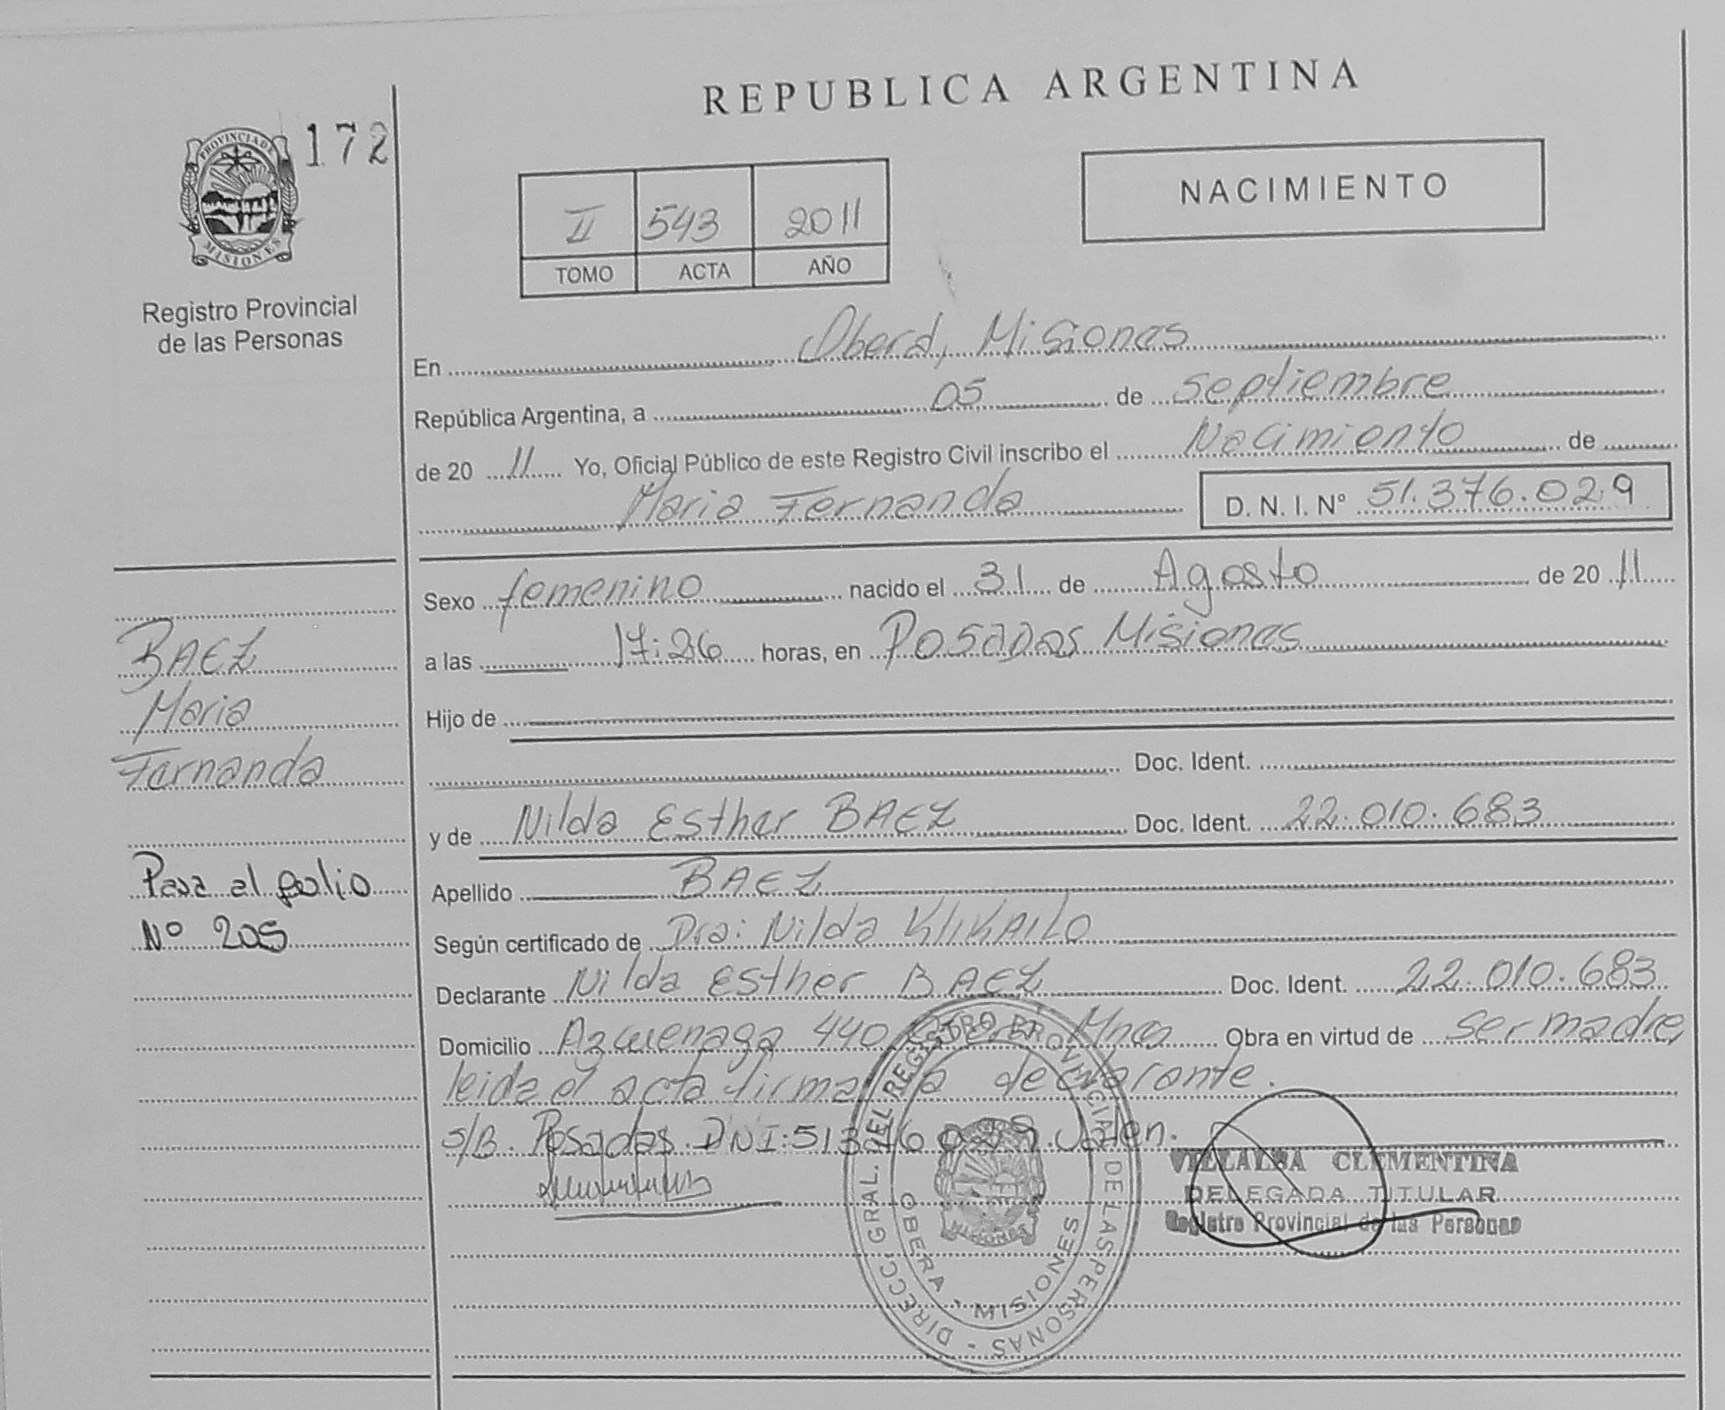 REPUBLICA ARGENTINA
PROVINCIA DE
MISIONES
172
Registro Provincial
de las Personas
NACIMIENTO
II 543 2011
TOMO ACTA AÑO
En Oberá, Misiones
República Argentina, a 05 de septiembre
de 20 11 Yo, Oficial Público de este Registro Civil inscribo el Nacimiento de
Maria Fernanda D. N. I. Nº 51.376.029
Sexo femenino nacido el 31 de Agosto de 20 11
a las 17:26 horas, en Posadas Misiones
Hijo de
Doc. Ident.
y de Nilda Esther BAEZ Doc. Ident. 22.010.683
Apellido BAEZ
Según certificado de Dra: Nilda
Declarante Nilda Esther BAEZ Doc. Ident. 22.010.683
Domicilio Azcuenaga 440 Oberá Mnes Obra en virtud de ser madre,
leida el acta firma la declarante.
S/B. Posadas DNI: 51376029 Valen.
BAEZ
Maria
Fernanda
Pasa al folio
Nº 205
DIRECC. GRAL. DEL REGISTRO PROVINCIAL DE LAS PERSONAS
OBERA - MISIONES
VILLALBA CLEMENTINA
DELEGADA TITULAR
Registro Provincial de las Personas